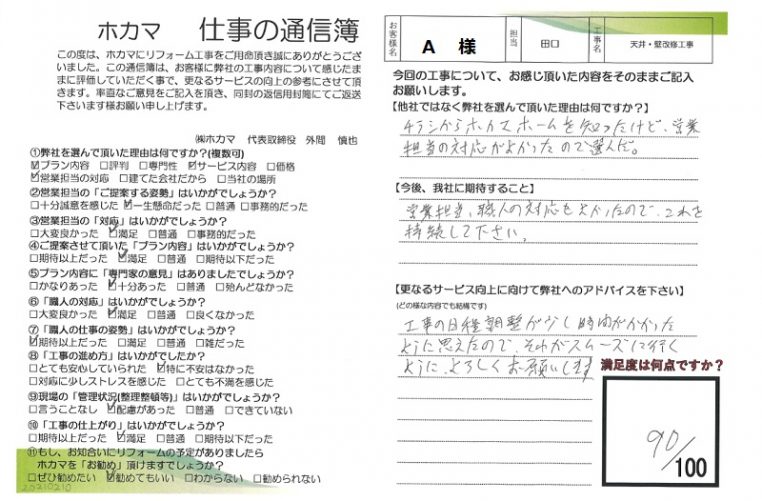 ホカマ 仕事の通信簿
この度は、ホカマにリフォーム工事をご用命頂き誠にありがとうござ
いました。この通信簿は、お客様に弊社の工事内容について感じたま
まに評価していただく事で、更なるサービスの向上の参考にさせて頂
きます。率直なご意見をご記入を頂き、同封の返信用封筒にてご返送
下さいます様お願い申し上げます。
㈱ホカマ 代表取締役 外間 慎也
①弊社を選んで頂いた理由は何ですか?(複数可)
☑プラン内容 □評判 □専門性 ☑サービス内容 □価格
☑営業担当の対応 □建てた会社だから □当社の場所
②営業担当の「ご提案する姿勢」はいかがでしょうか?
□十分誠意を感じた ☑一生懸命だった □普通 □事務的だった
③営業担当の「対応」はいかがでしょうか?
□大変良かった ☑満足 □普通 □事務的だった
④ご提案させて頂いた「プラン内容」はいかがでしょうか?
□期待以上だった ☑満足 □普通 □期待以下だった
⑤プラン内容に「専門家の意見」はありましたでしょうか?
□かなりあった ☑十分あった □普通 □殆んどなかった
⑥「職人の対応」はいかがでしょうか?
□大変良かった ☑満足 □普通 □良くなかった
⑦「職人の仕事の姿勢」はいかがでしょうか?
☑期待以上だった □満足 □普通 □雑だった
⑧「工事の進め方」はいかがでしたか?
□とても安心していられた ☑特に不安はなかった
□対応に少しストレスを感じた □とても不満を感じた
⑨現場の「管理状況(整理整頓等)」はいかがでしょうか?
□言うことなし ☑配慮があった □普通 □できていない
⑩「工事の仕上がり」はいかがでしょうか?
□期待以上だった ☑満足 □普通 □期待以下だった
⑪もし、お知合いにリフォームの予定がありましたら
ホカマを「お勧め」頂けますでしょうか?
□ぜひ勧めたい ☑勧めてもいい □わからない □勧められない
20210210
お客様名 A 様 担当 田口 工事名 天井・壁改修工事
今回の工事について、お感じ頂いた内容をそのままご記入
お願いします。
【他社ではなく弊社を選んで頂いた理由は何ですか?】
チラシからホカマホームを知ったけど、営業
担当の対応がよかったので選んだ。
【今後、我社に期待すること】
営業担当、職人の対応もよかったので、これを
持続して下さい。
【更なるサービス向上に向けて弊社へのアドバイスを下さい】
(どの様な内容でも結構です)
工事の日程調整が少し時間がかかった
ように思えたので、それがスムーズに行く
ように、よろしくお願いします
満足度は何点ですか?
90/
100